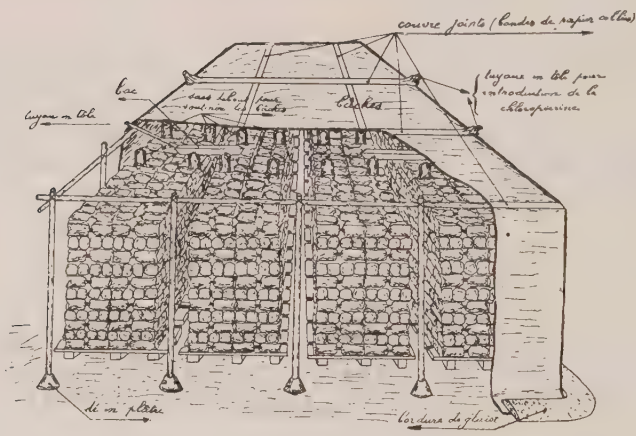 couvre joints (bandes de papier collées)
bac
sacs debout pour
soutenir les bâches
bâches
tuyaux en tôle pour
introduction de la
chloropicrine
tuyau en tôle
dé en plâtre
bordure de glaise